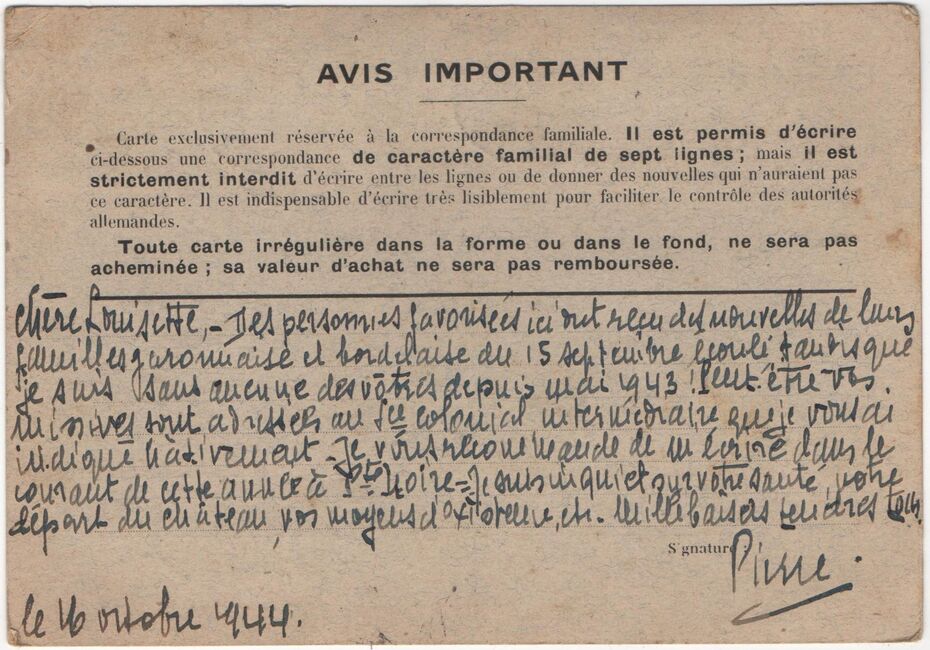 AVIS IMPORTANT
Carte exclusivement réservée à la correspondance familiale. Il est permis d'écrire
ci-dessous une correspondance de caractère familial de sept lignes ; mais il est
strictement interdit d'écrire entre les lignes ou de donner des nouvelles qui n'auraient pas
ce caractère. Il est indispensable d'écrire très lisiblement pour faciliter le contrôle des autorités
allemandes.
Toute carte irrégulière dans la forme ou dans le fond, ne sera pas
acheminée ; sa valeur d'achat ne sera pas remboursée.
Chère Louisette, - Des personnes favorisées ici ont reçu des nouvelles de leurs
familles garonnaise et bordelaise du 15 septembre écoulé tandis que
je suis sans aucune des vôtres depuis mai 1943 ! Peut-être vos
missives sont adressées au Sce colonial intermédiaire que je vous ai
indiqué hâtivement - Je vous recommande de m'écrire dans le
courant de cette année à Pte Noire - Je suis inquiet sur votre santé, votre
départ du château, vos moyens d'existence, etc. Mille baisers tendres
Signature :
Pierre.
le 16 octobre 1944.